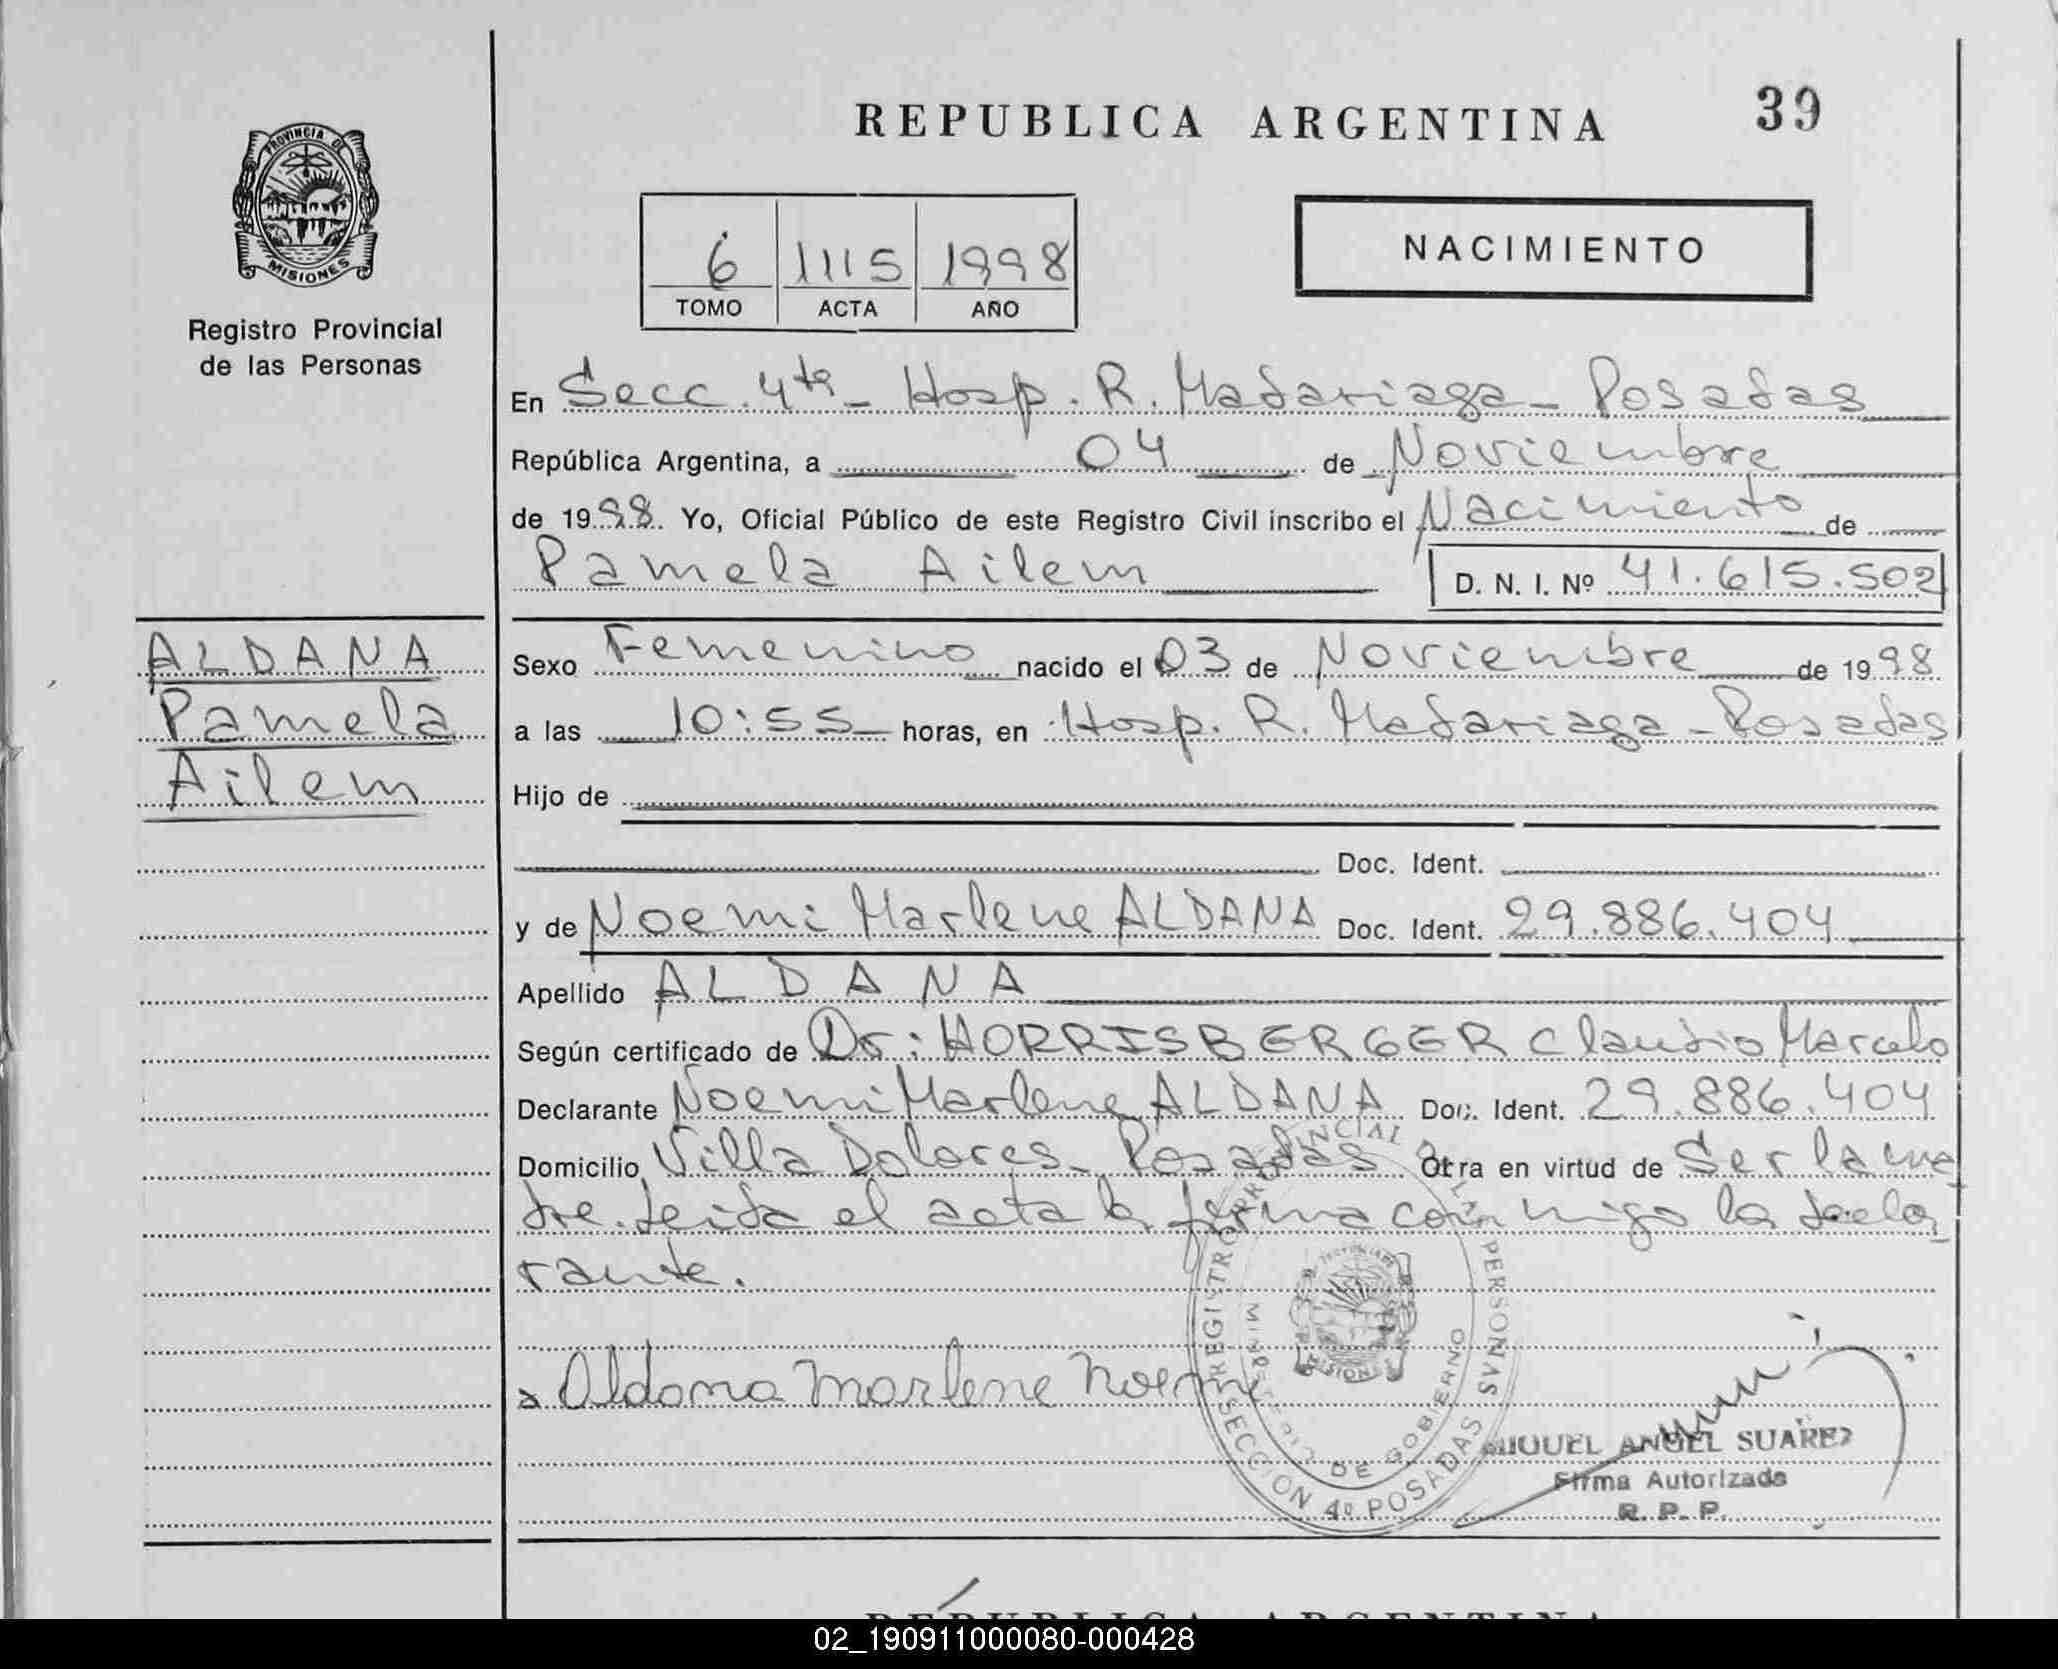 REPUBLICA ARGENTINA
39
PROVINCIA DE
MISIONES
Registro Provincial
de las Personas
6 1115 1998
TOMO ACTA AÑO
NACIMIENTO
En Secc. 4ta - Hosp. R. Madariaga - Posadas
República Argentina, a 04 de Noviembre
de 1998. Yo, Oficial Público de este Registro Civil inscribo el Nacimiento de
Pamela Ailem D. N. I. Nº 41.615.502
ALDANA
Pamela
Ailem
Sexo Femenino nacido el 03 de Noviembre de 1998
a las 10:55 horas, en Hosp. R. Madariaga - Posadas
Hijo de
Doc. Ident.
y de Noemi Marlene ALDANA Doc. Ident. 29.886.404
Apellido ALDANA
Según certificado de Dr: HORRISBERGER Claudio Marcelo
Declarante Noemi Marlene ALDANA Doc. Ident. 29.886.404
Domicilio Villa Dolores - Posadas Otra en virtud de Ser la ma
dre. Leida el acta la firma conmigo la decla
rante.
Aldana Marlene Noemi
REGISTRO PROVINCIAL DE LAS PERSONAS
MINISTERIO DE GOBIERNO
SECCION 4º POSADAS
MISIONES
MIGUEL ANGEL SUAREZ
Firma Autorizada
R. P. P.
REPUBLICA ARGENTINA
02_190911000080-000428